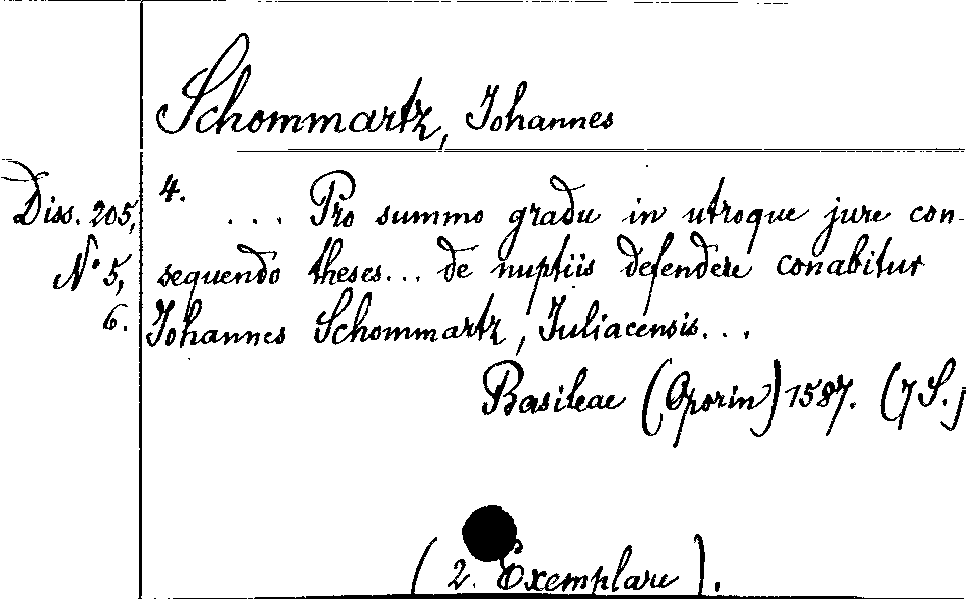 Schommartz, Johannes
Diss. 205,
No 5,
6.
4. ... Pro summo gradu in utroque jure con-
sequendo theses... de nuptiis defendere conabitur
Johannes Schommartz, Juliacensis...
Basileae (Oporin) 1587. (7 S.)
(2. Exemplare).